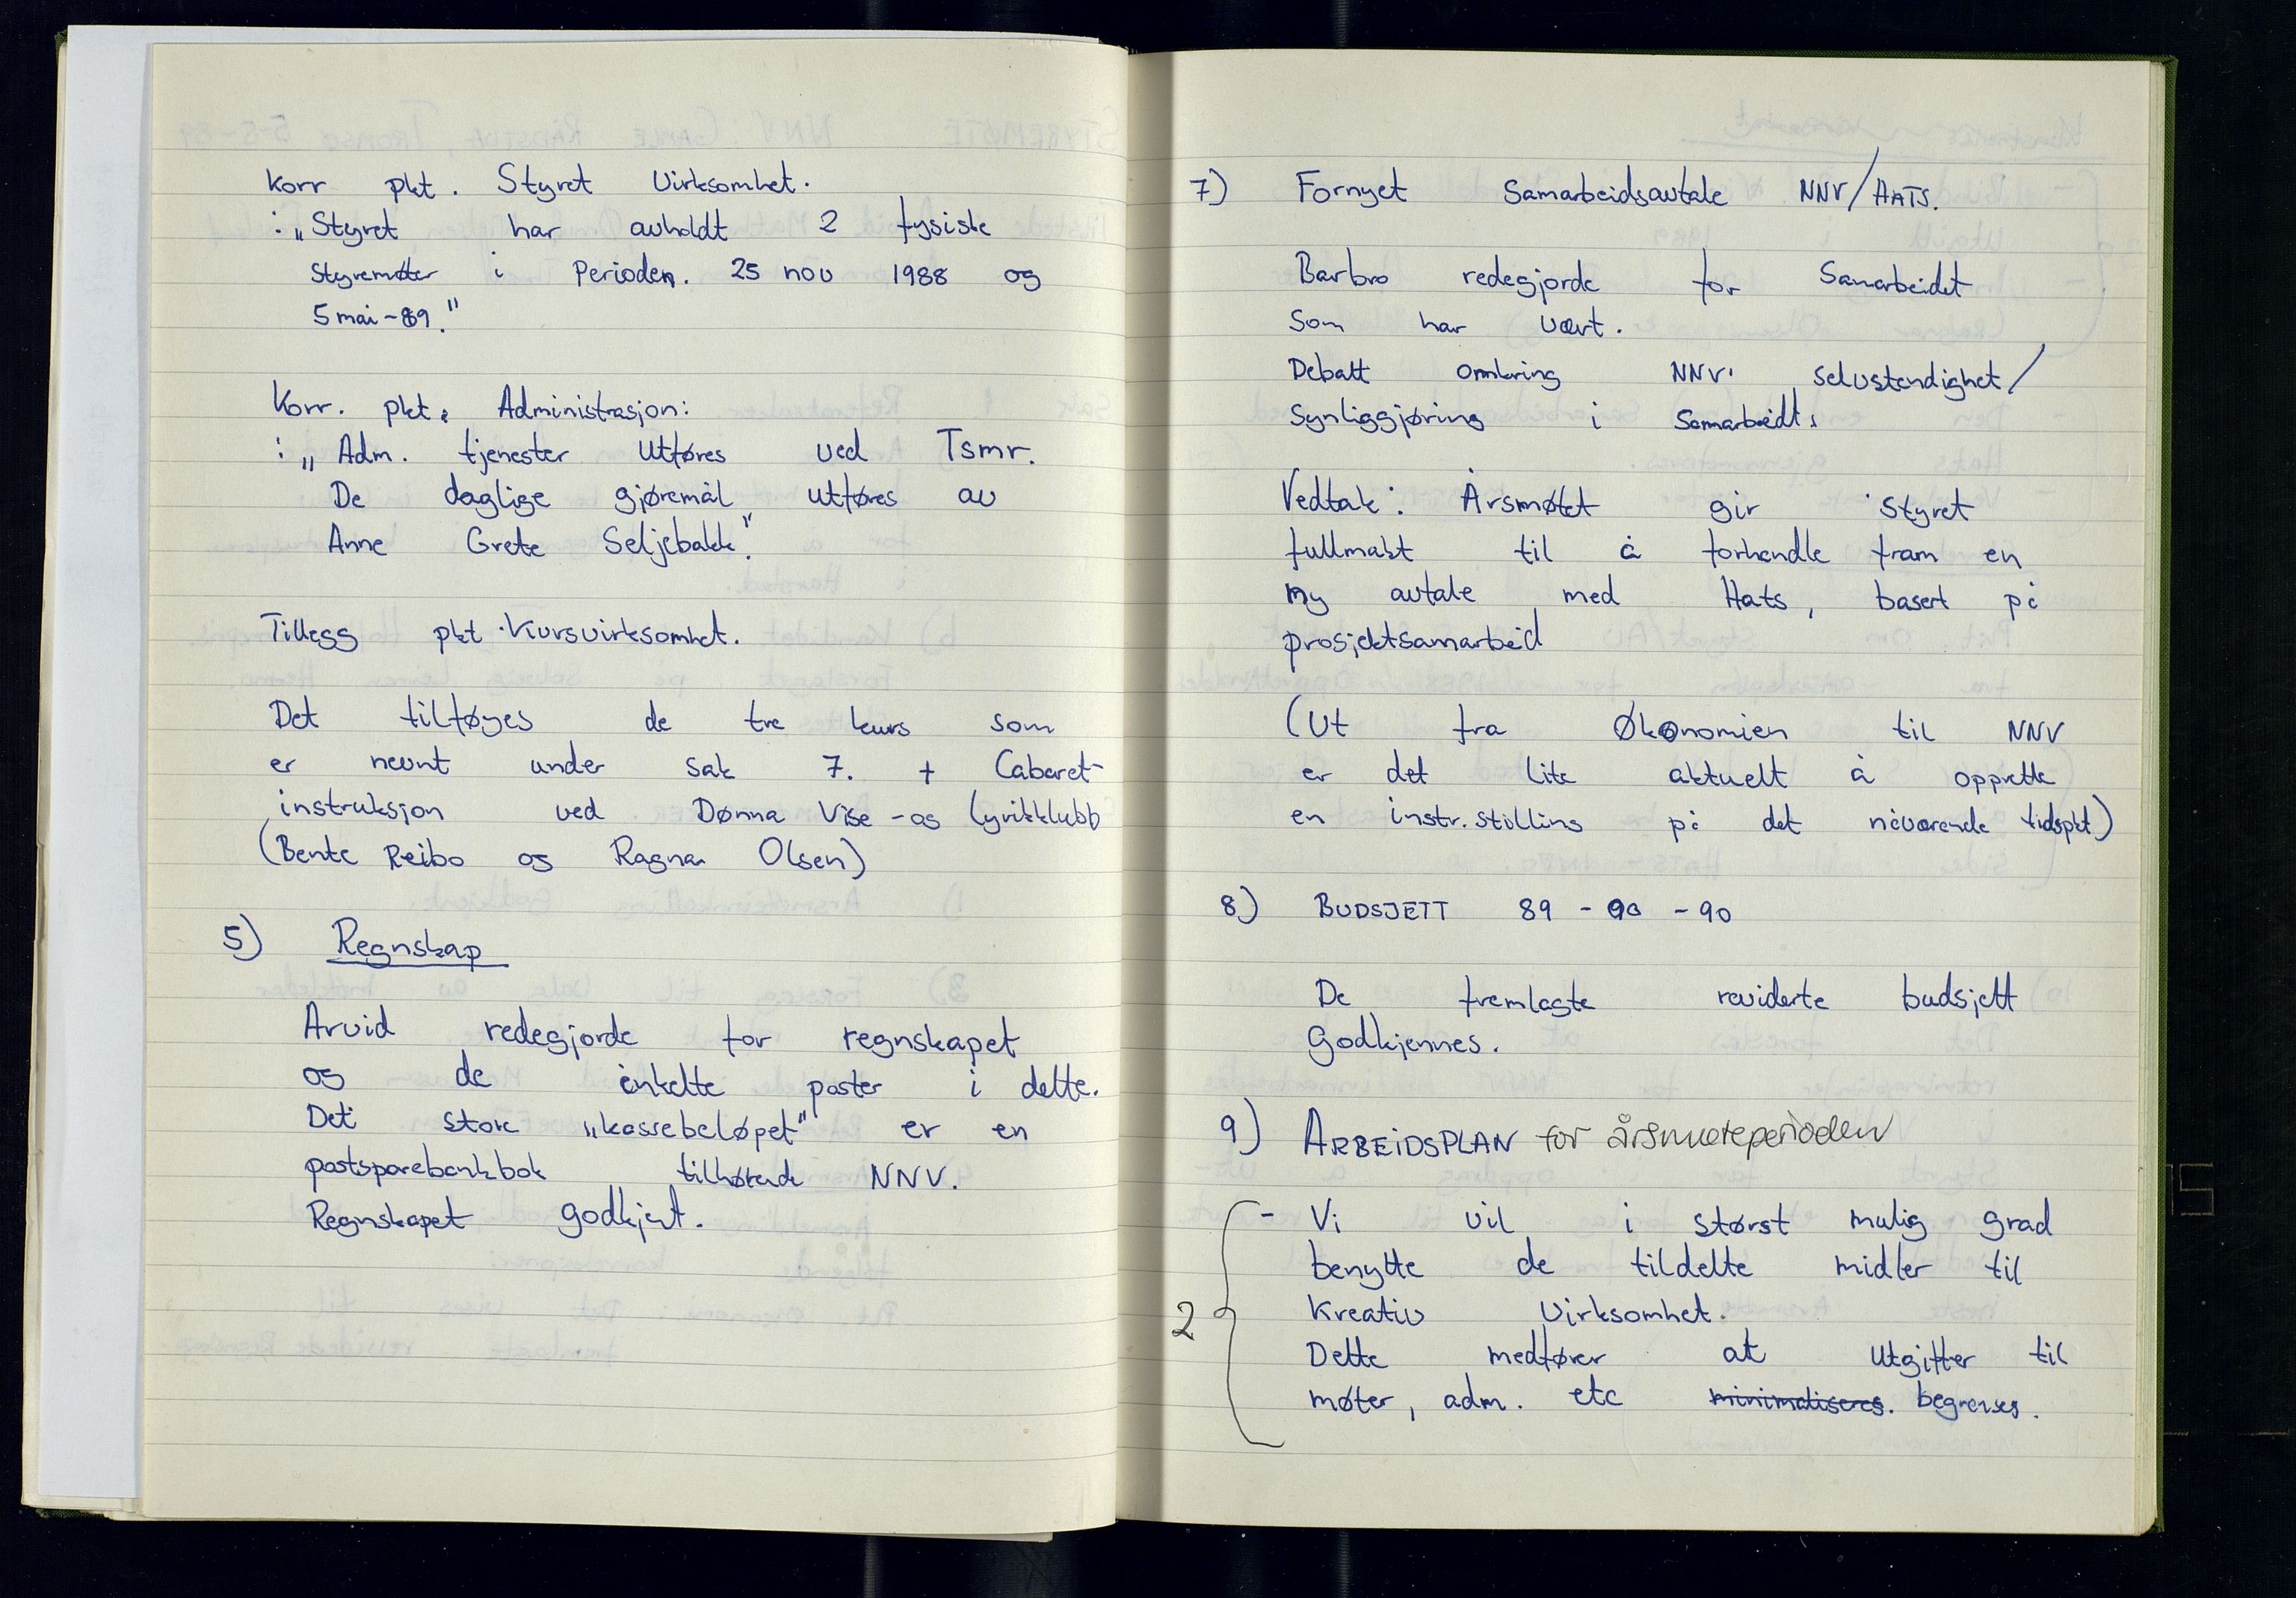 Korr pkt. Styret Virksomhet.
: „Styret har avholdt 2 fysiske
styremøter i Perioden. 25 nov 1988 og
5 mai-89."
Korr. pkt. Administrasjon:
: „Adm. tjenester utføres ved Tsmr.
De daglige gjøremål utføres av
Anne Grete Seljebakk".
Tillegg pkt. Kursvirksomhet.
Det tilføyes de tre kurs som
er nevnt under sak 7. + Cabaret-
instruksjon ved Dønna Vise-og Lyrikklubb
(Bente Reibo og Ragnar Olsen)
5) Regnskap
Arvid redegjorde for regnskapet
og de enkelte poster i dette.
Det store „kassebeløpet" er en
postsparebankbok tilhørende NNV.
Regnskapet godkjent.
7) Fornyet Samarbeidsavtale NNV/HATS.
Barbro redegjorde for Samarbeidet
Som har vært.
Debatt omkring NNV' selvstendighet/
Synliggjøring i Samarbeidt.
Vedtak: Årsmøtet gir Styret
fullmakt til å forhandle fram en
ny avtale med Hats, basert på
prosjektsamarbeid
(Ut fra Økonomien til NNV
er det lite aktuelt å opprette
en instr.stilling på det nåværende tidspkt)
8) BUDSJETT 89 - 90 - 90
De fremlagte reviderte budsjett
Godkjennes.
9) ARBEIDSPLAN for årsmøteperioden
- Vi vil i størst mulig grad
benytte de tildelte midler til
2 Kreativ Virksomhet.
Dette medfører at Utgifter til
møter, adm. etc minimaliseres. begrenses.